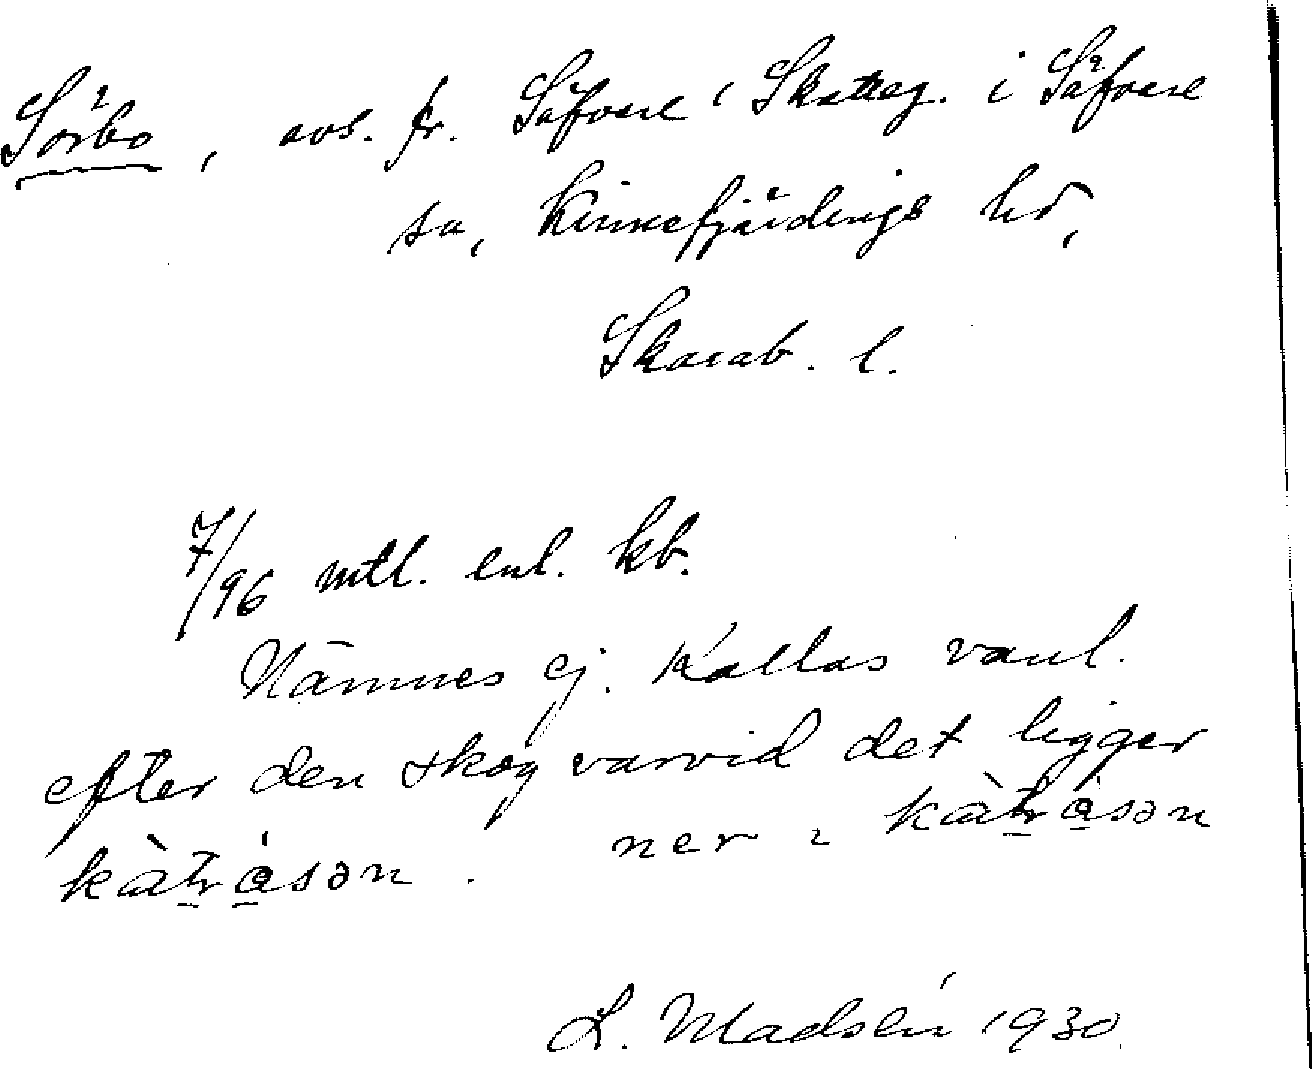 Sörbo, avs. fr. Säfvare, Skatteg. i Säfvare
sn, Kinnefjärdings hd,
Skarab. l.
7/96 mtl. enl. kb.
Nämnes ej. Kallas vanl.
efter den skog varvid det ligger
kàtråsən. ner i kàtråsən
L. Madslin 1930